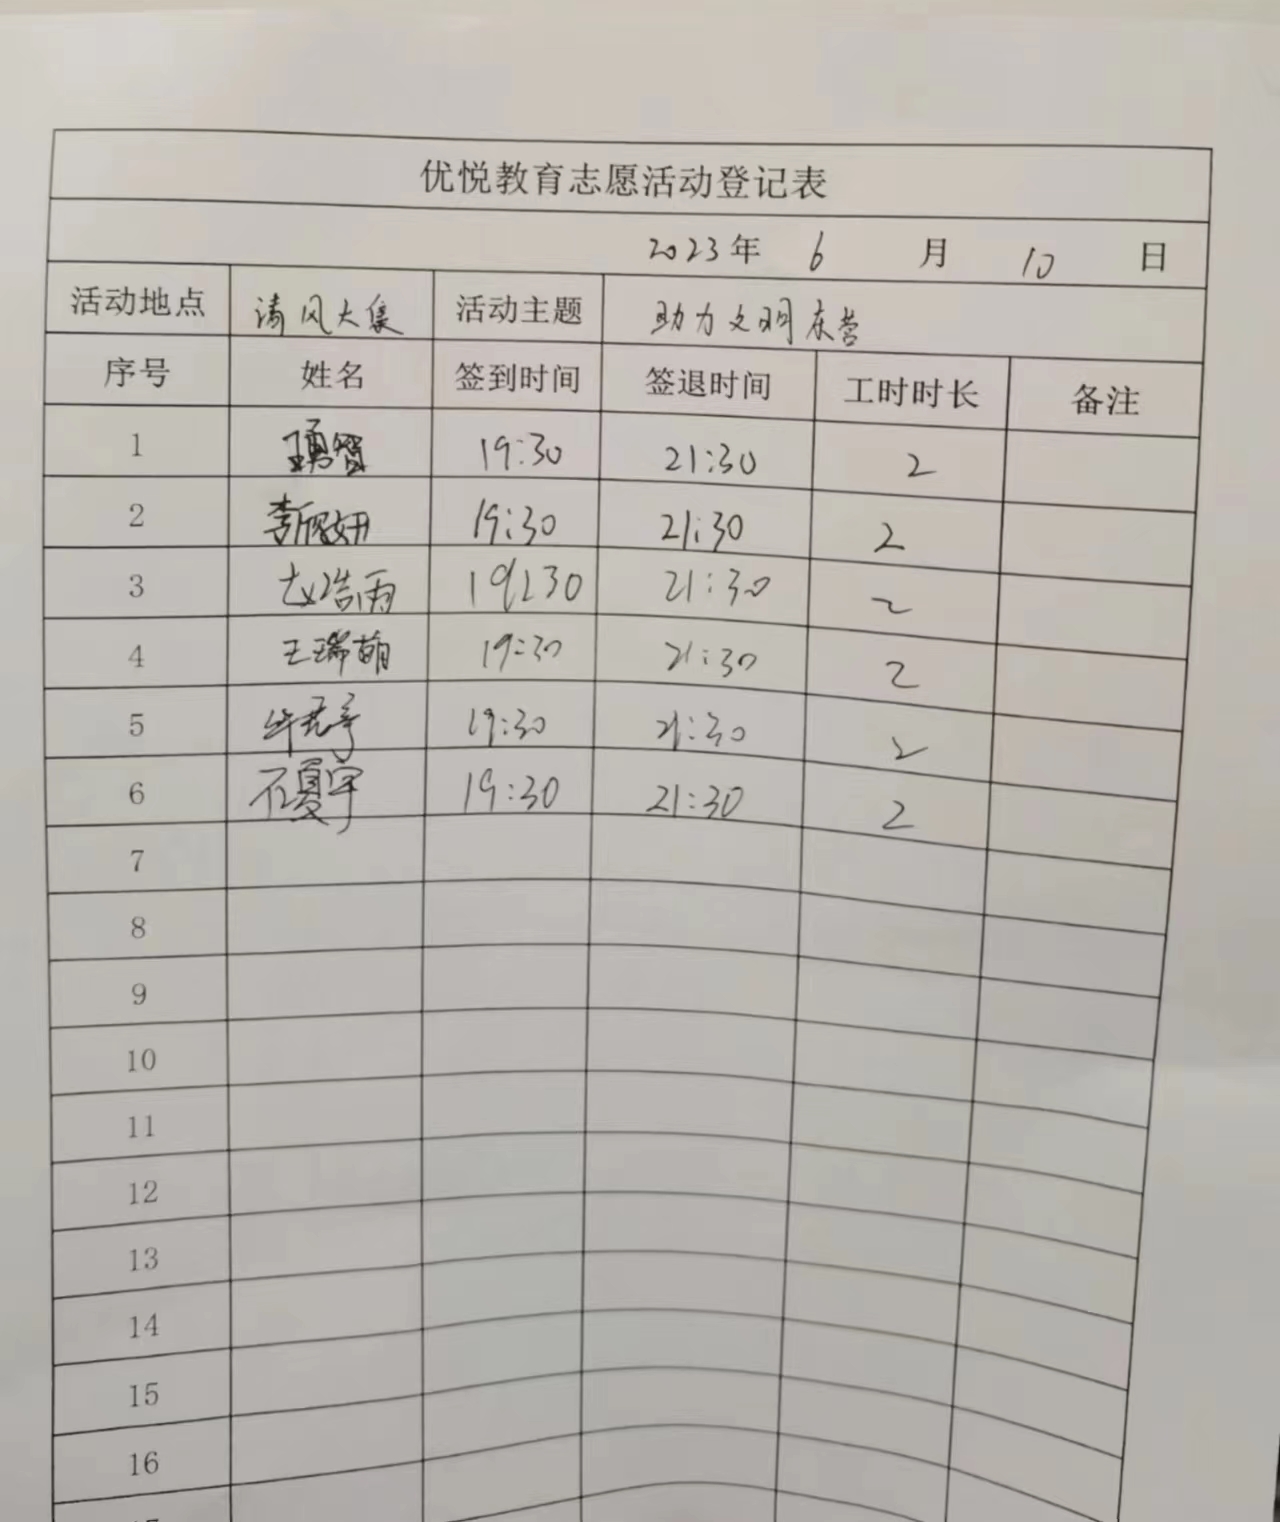 优悦教育志愿活动登记表
2023年 6 月 10 日
活动地点 清风大集 活动主题 助力文明东营
序号 姓名 签到时间 签退时间 工时时长 备注
1 19:30 21:30 2
2 李欣妍 19:30 21:30 2
3 赵浩雨 19:30 21:30 2
4 王瑞萌 19:30 21:30 2
5 19:30 21:30 2
6 石夏宇 19:30 21:30 2
7
8
9
10
11
12
13
14
15
16